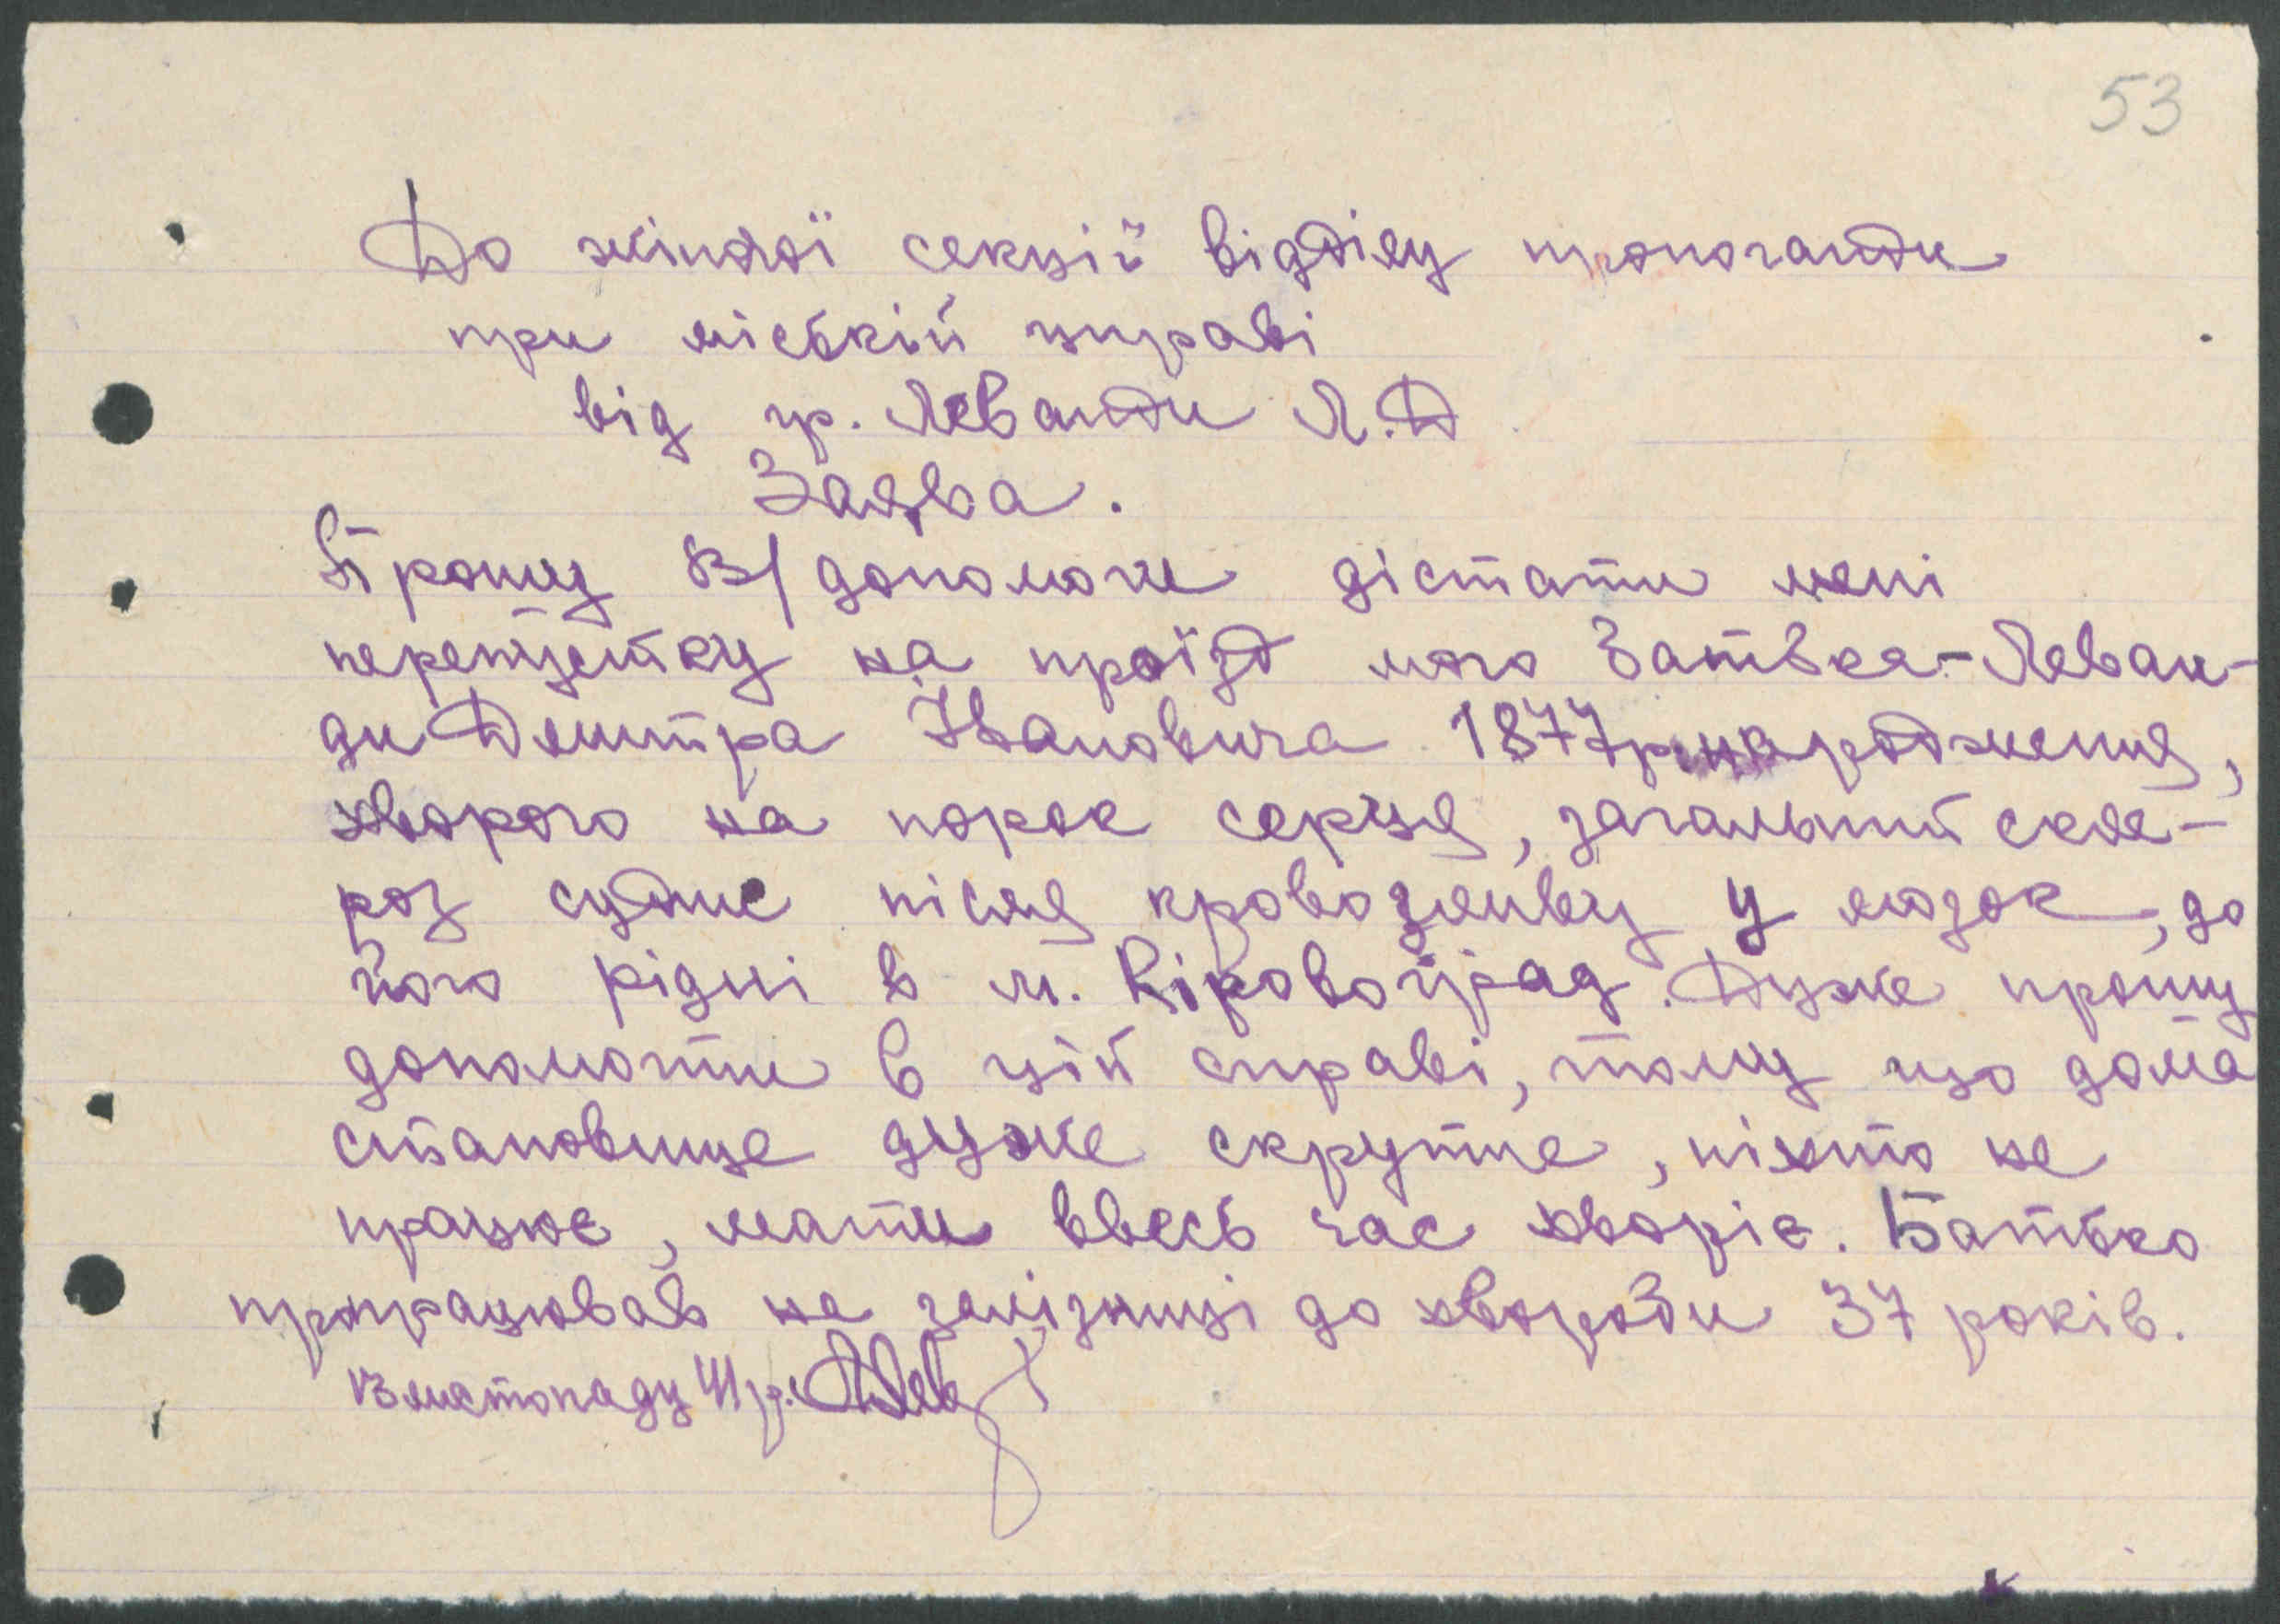 53
До жіночої секції відділу пропоганди
при міській управі
від гр. Леванди Л.Д
Заява.
Прошу В/ допомоги дістати мені
перепустку на проїзд мого батька-Леван-
ди Дмитра Івановича 1877р. народження,
хворого на порок серця, загальний скле-
роз судин після кровозливу у мозок, до
його рідні в м. Кіровоград. Дуже прошу
допомогти в цій справі, тому що дома
становище дуже скрутне, ніхто не
працює, мати ввесь час хворіє. Батько
пропрацював на залізниці до хвороби 37 років.
13 листопаду 41 р.